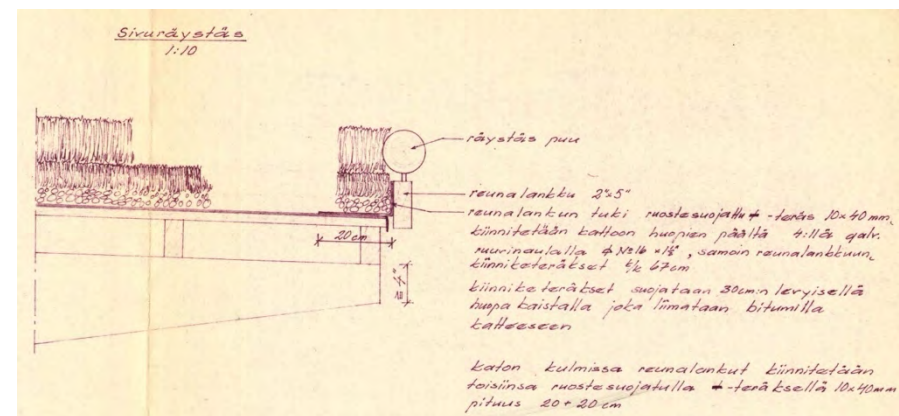 Sivuräystäs
1:10
räystäs puu
reunalankku 2"x5"
reunalankun tuki ruostesuojattu -teräs 10x40mm.
kiinnitetään kattoon huopien päältä 4:llä galv.
ruurinaulalla φ N:16 × 1½", samoin reunalankkuun,
kiinniketeräkset k/k 67cm
kiinniketeräkset suojataan 30cm:n levyisellä
huopa kaistalla joka liimataan bitumilla
katteeseen
20cm
4"
katon kulmissa reunalankut kiinnitetään
toisiinsa ruostesuojatulla -teräksellä 10x40mm
pituus 20+20cm